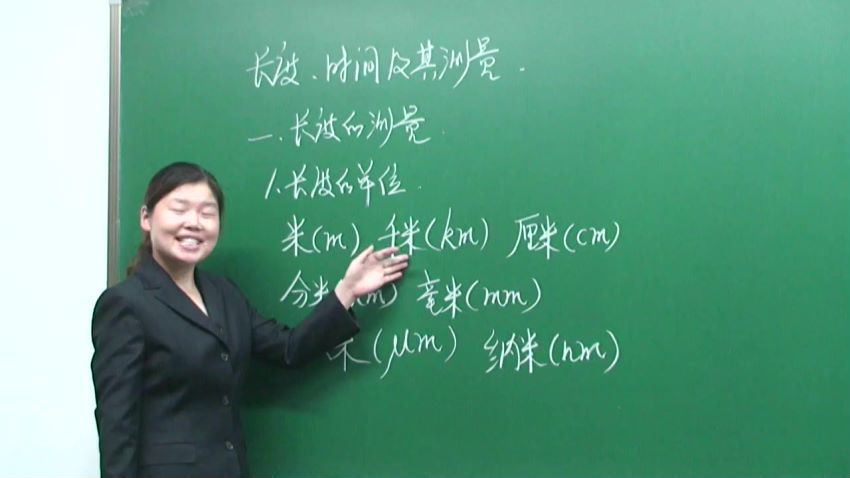 长度、时间及其测量.
一、长度的测量.
1、长度的单位.
米(m) 千米(km) 厘米(cm)
分米 m) 毫米(mm)
米(μm) 纳米(nm)